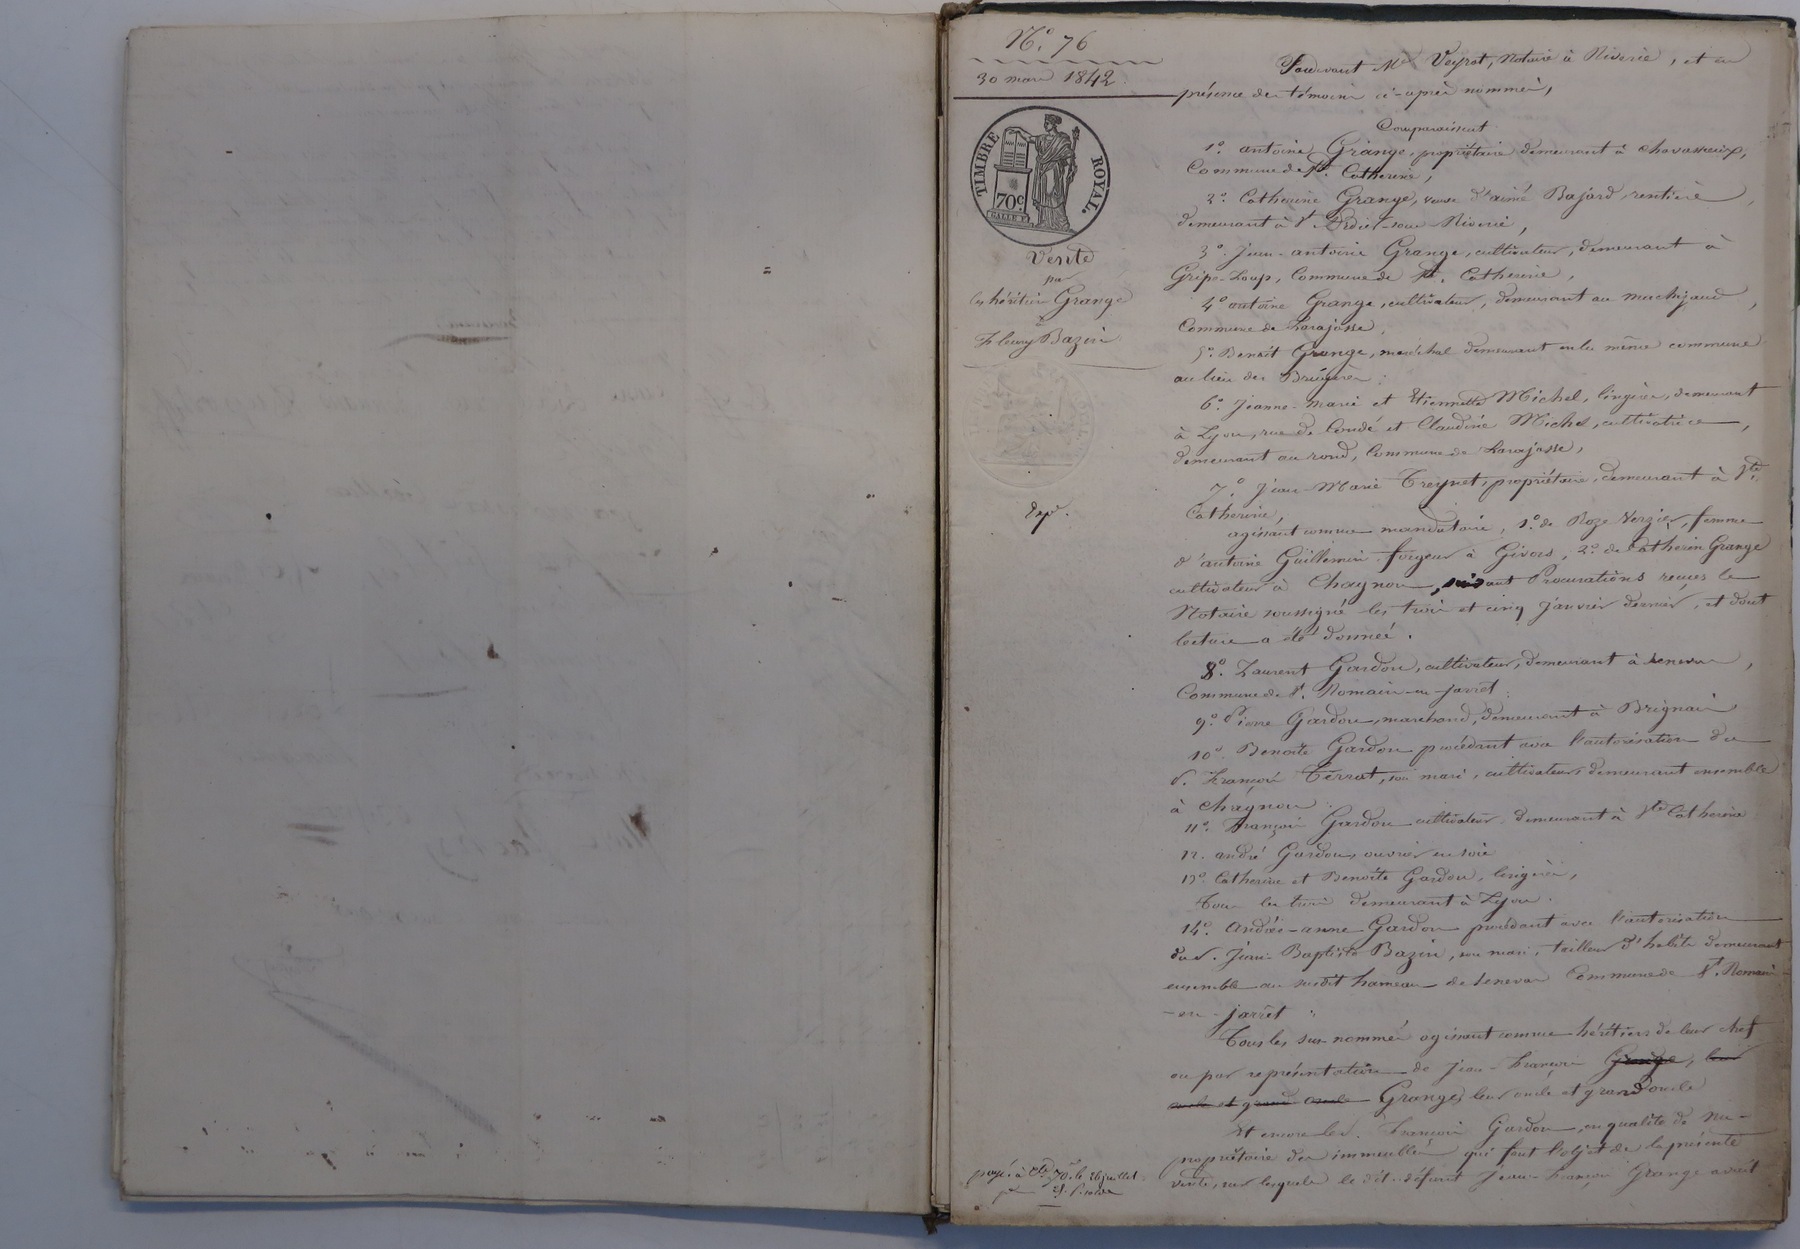 N.° 76
30 mars 1842
TIMBRE ROYAL.
70c.
Vente
par
les héritiers Grange
à
Fleury Bazin
Exp.
Pardevant Me Veyrot, Notaire à Riverie, et en
présence des témoins ci-après nommés,
Comparaissent
1°. antoine Grange, propriétaire demeurant à chavasseux,
Commune de Ste. Catherine,
2°. Catherine Grange, veuve d'aimé Bajard, rentière,
demeurant à St Didier-sous-Riverie,
3°. Jean-antoine Grange, cultivateur, demeurant à
Gripe-Loup, Commune de Ste. Catherine,
4° antoine Grange, cultivateur, demeurant au
Commune de Larajasse,
5°. Benoit Grange, maréchal demeurant en la même commune
au lieu des Bruyères;
6°. Jeanne-marie et Etiennette Michel, lingères, demeurant
à Lyon, rue de Condé et Claudine Michel, cultivatrice,
demeurant au rond, Commune de Larajasse,
7°. Jean-Marie Treynet, propriétaire, demeurant à Ste.
Catherine,
agissant comme mandataire, 1°. de Roze Verzier, femme
d'antoine Guillemin forgeur à Givors, 2°. de Catherin Grange
cultivateur à Chagnon, suivant Procurations reçues le
Notaire soussigné les trois et cinq janvier dernier, et dont
lecture a été donnée.
8°. Laurent Gardon, cultivateur, demeurant à Senevas,
Commune de St. Romain-en-jarret;
9°. Pierre Gardon, marchand, demeurant à Brignais
10°. Benoite Gardon procédant avec l'autorisation du
S. François Terrat, son mari, cultivateurs demeurant ensemble
à Chagnon;
11°. François Gardon cultivateur, demeurant à Ste Catherine
12. andré Gardon, ouvrier en soie
13°. Catherine et Benoite Gardon, lingères,
Tous les trois demeurant à Lyon.
14°. Andrée-anne Gardon procédant avec l'autorisation
du S. Jean-Baptiste Bazin, son mari, tailleur d'habits demeurant
ensemble au susdit hameau de Senevas Commune de St. Romain
-en-jarret;
Tous les sus-nommés agissant comme héritiers de leur chef
ou par représentation de Jean-François Grange, leur
oncle et grand oncle Grange, leur oncle et grand oncle
Et encore led. François Gardon, en qualité de nu-
propriétaire des immeubles qui font l'objet de la présente
vente, sur lesquels le dit défunt Jean-François Grange avait